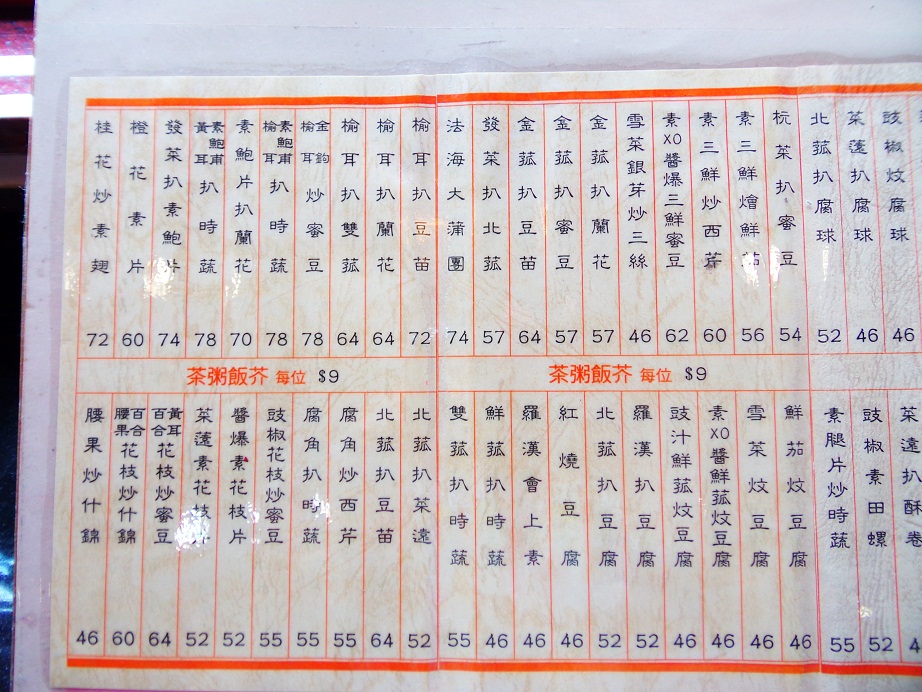 豉椒炆腐球 46
菜薳扒腐球 46
北菰扒腐球 52
杬菜扒蜜豆 54
素三鮮燴鮮菇 56
素三鮮炒西芹 60
素XO醬爆三鮮蜜豆 62
雪菜銀芽炒三絲 46
金菰扒蘭花 57
金菰扒蜜豆 57
金菰扒豆苗 64
發菜扒北菰 57
法海大蒲團 74
榆耳扒豆苗 72
榆耳扒蘭花 64
榆耳扒雙菰 64
金鈎榆耳炒蜜豆 78
素鮑甫榆耳扒時蔬 78
素鮑片扒蘭花 70
素鮑甫黃耳扒時蔬 78
發菜扒素鮑片 74
橙花素片 60
桂花炒素翅 72
茶粥飯芥 每位 $9
茶粥飯芥 每位 $9
菜遠扒酥卷
豉椒素田螺 52
素腿片炒時蔬 55
鮮茄炆豆腐 46
雪菜炆豆腐 46
素XO醬鮮菰炆豆腐 46
豉汁鮮菰炆豆腐 46
羅漢扒豆腐 52
北菰扒豆腐 52
紅燒豆腐 46
羅漢會上素 46
鮮菰扒時蔬 46
雙菰扒時蔬 55
北菰扒菜遠 52
北菰扒豆苗 64
腐角炒西芹 55
腐角扒時蔬 55
豉椒花枝炒蜜豆 55
醬爆素花枝片 52
菜薳素花枝片 52
黃耳百合花枝炒蜜豆 64
百合腰果花枝炒什錦 60
腰果炒什錦 46